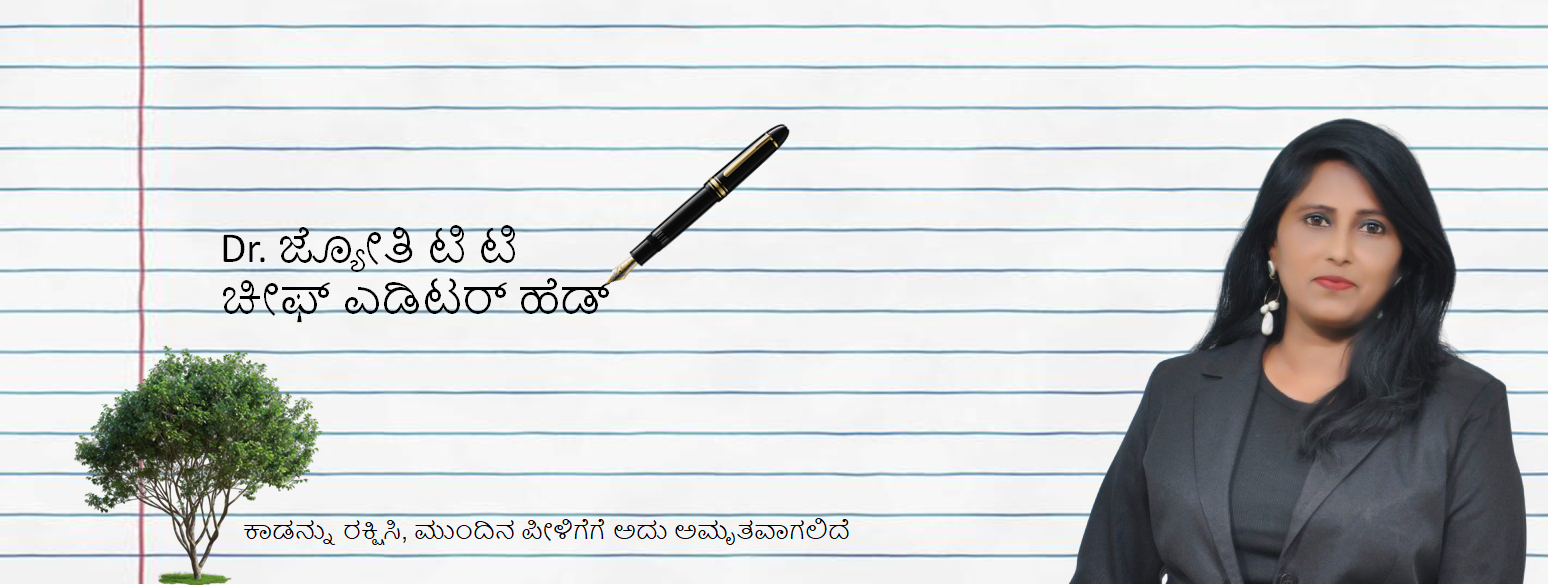 Dr. ಜ್ಯೋತಿ ಟಿ ಟಿ
ಚೀಫ್ ಎಡಿಟರ್ ಹೆಡ್
ಕಾಡನ್ನು ರಕ್ಷಿಸಿ, ಮುಂದಿನ ಪೀಳಿಗೆಗೆ ಅದು ಅಮೃತವಾಗಲಿದೆ